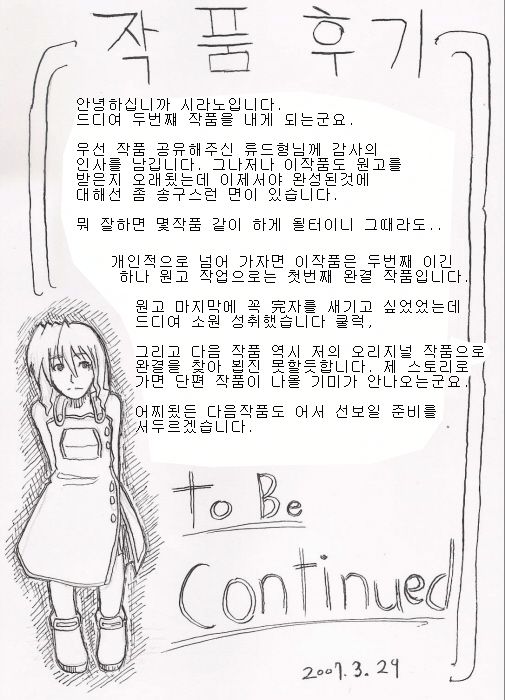 작품 후기
안녕하십니까 시라노입니다.
드디여 두번째 작품을 내게 되는군요.
우선 작품 공유해주신 류드형님께 감사의
인사를 남깁니다. 그나저나 이작품도 원고를
받은지 오래됬는데 이제서야 완성된것에
대해선 좀 송구스런 면이 있습니다.
뭐 잘하면 몇작품 같이 하게 될터이니 그때라도..
개인적으로 넘어 가자면 이작품은 두번째 이긴
하나 원고 작업으로는 첫번째 완결 작품입니다.
원고 마지막에 꼭 完자를 새기고 싶었었는데
드디여 소원 성취했습니다 쿨럭,
그리고 다음 작품 역시 저의 오리지널 작품으로
완결을 찾아 뵙진 못할듯합니다. 제 스토리로
가면 단편 작품이 나올 기미가 안나오는군요.
어찌됬든 다음작품도 어서 선보일 준비를
서두르겠습니다.
To Be
Continued
2007.3.29